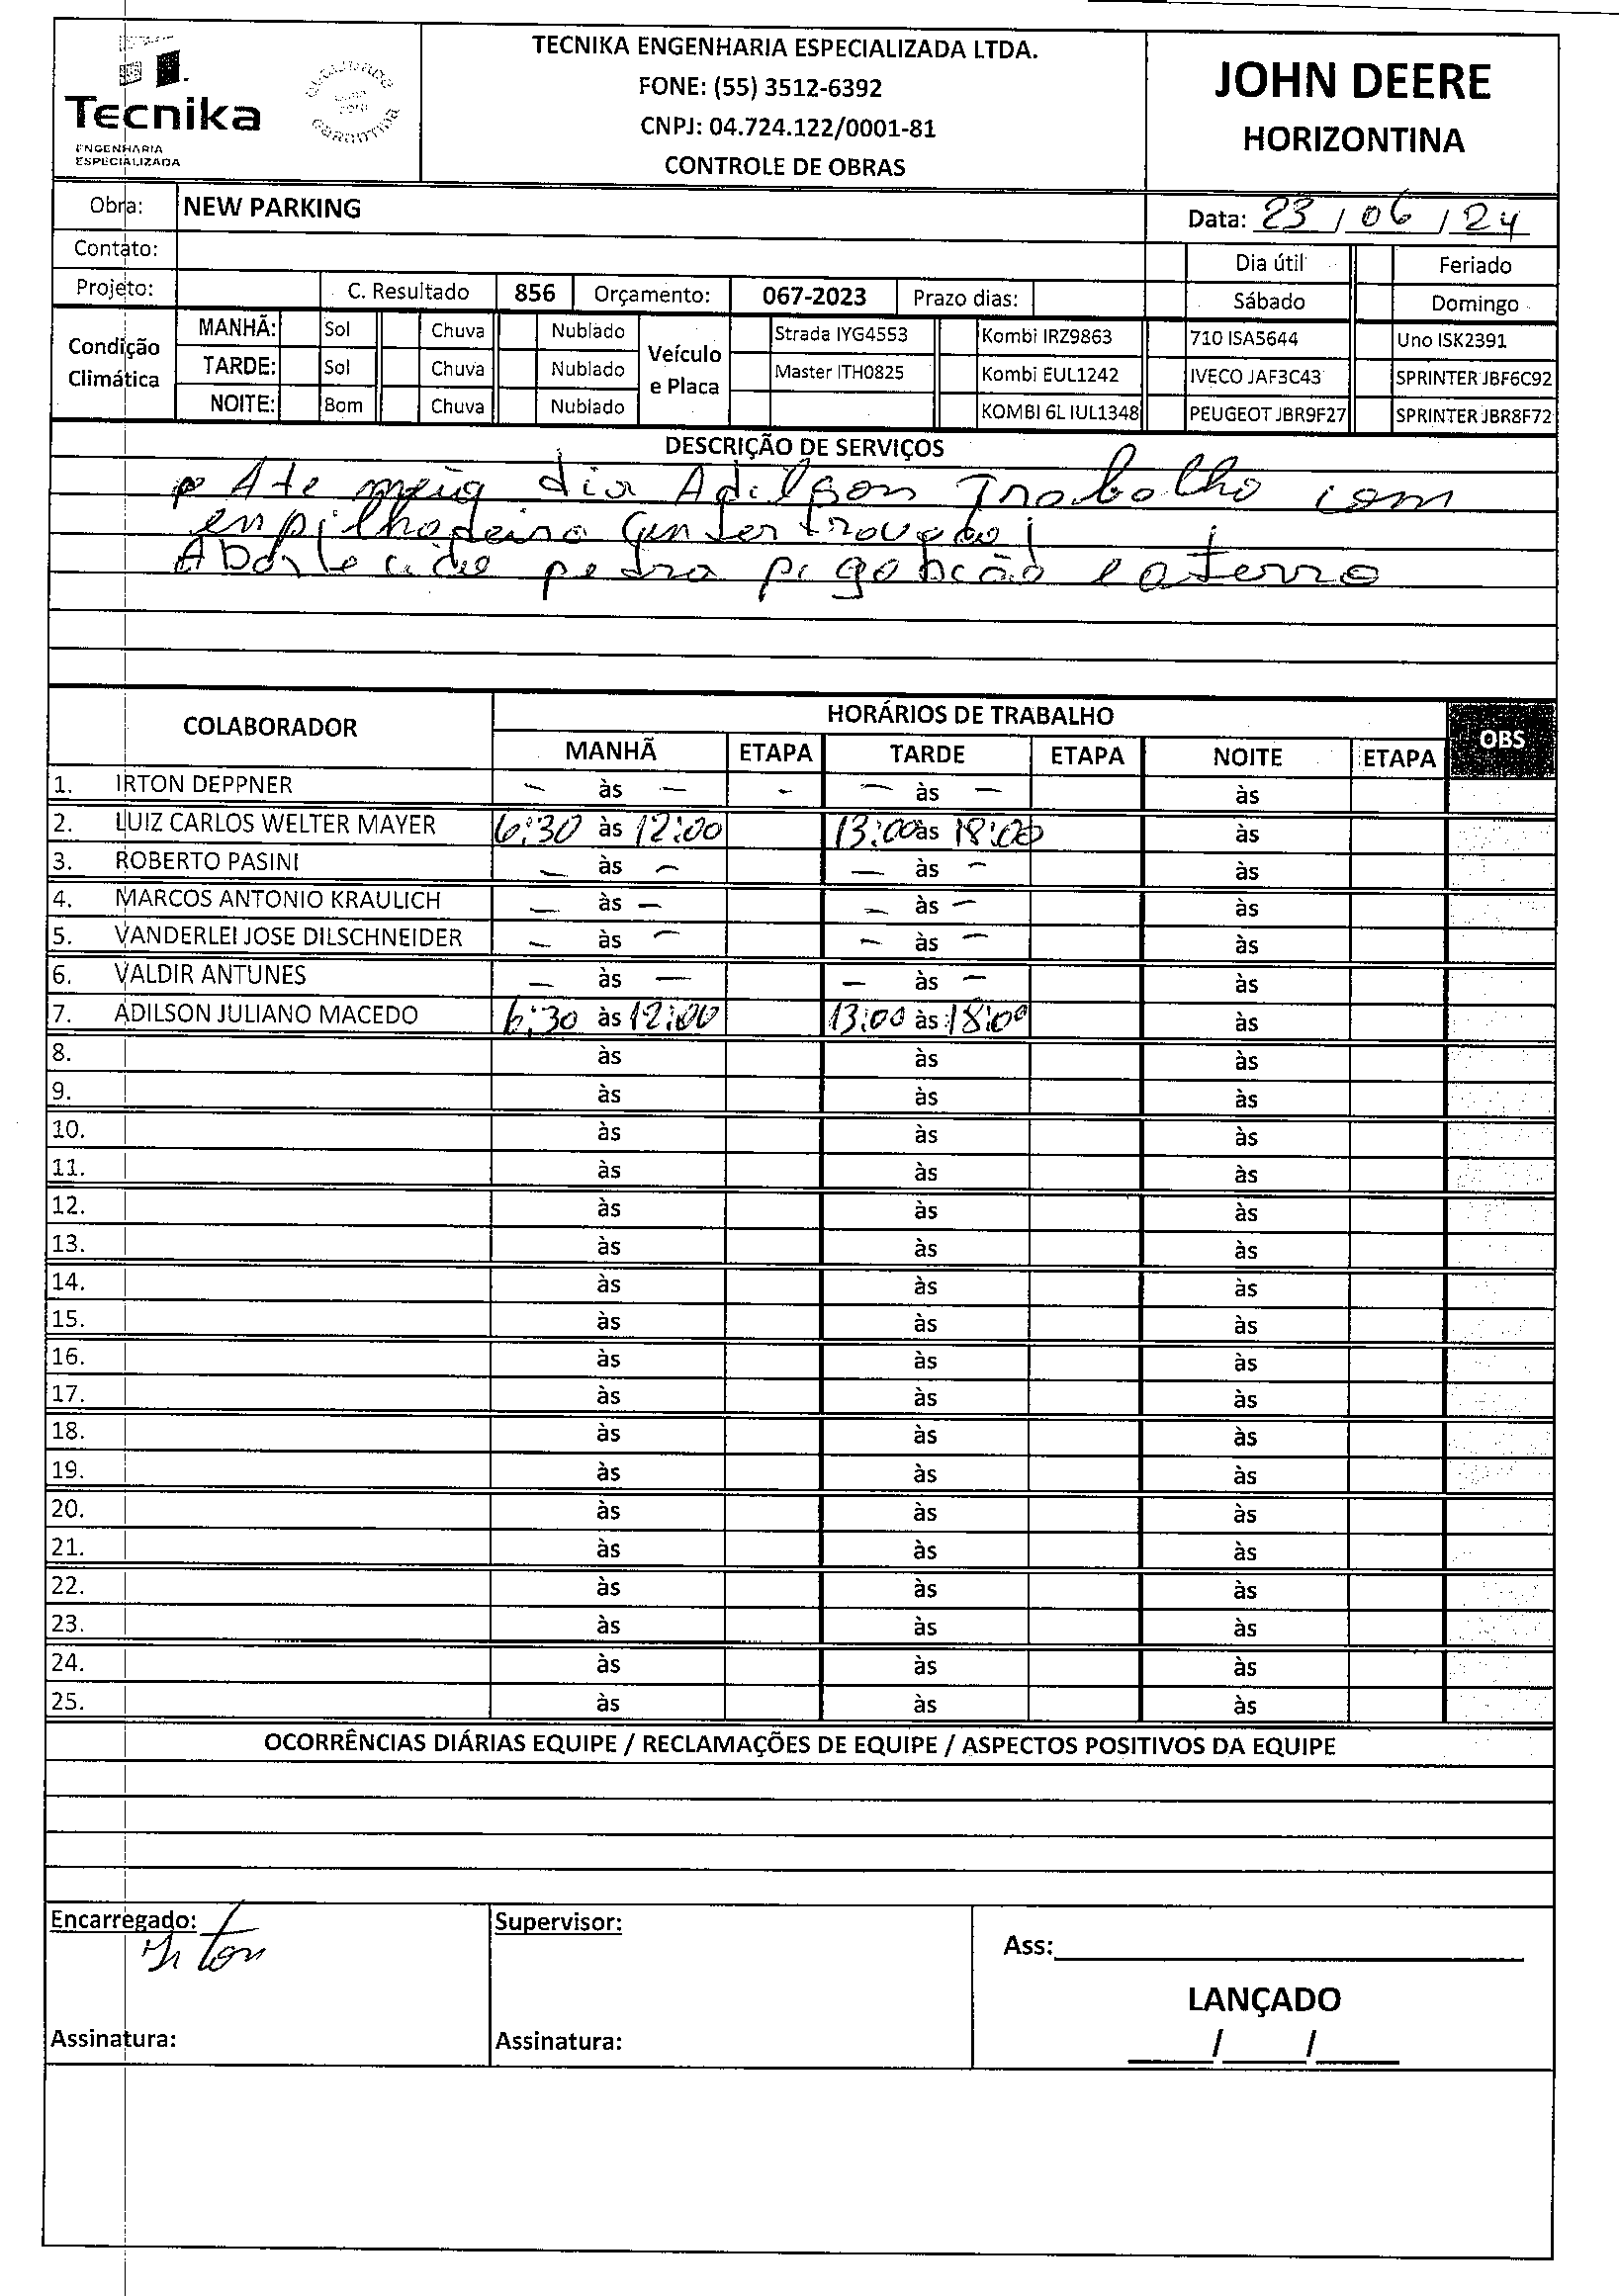 Tecnika
ENGENHARIA
ESPECIALIZADA
GARANTIDA
TECNIKA ENGENHARIA ESPECIALIZADA LTDA.
FONE: (55) 3512-6392
CNPJ: 04.724.122/0001-81
CONTROLE DE OBRAS
JOHN DEERE
HORIZONTINA
Obra: NEW PARKING
Data: 23 / 06 / 24
Contato:
Dia útil Feriado
Projeto: C. Resultado 856 Orçamento: 067-2023 Prazo dias: Sábado Domingo
Condição Climática
MANHÃ: Sol Chuva Nublado
TARDE: Sol Chuva Nublado
NOITE: Bom Chuva Nublado
Veículo e Placa
Strada IYG4553 Kombi IRZ9863 710 ISA5644 Uno ISK2391
Master ITH0825 Kombi EUL1242 IVECO JAF3C43 SPRINTER JBF6C92
KOMBI 6L IUL1348 PEUGEOT JBR9F27 SPRINTER JBR8F72
DESCRIÇÃO DE SERVIÇOS
Ate meia dia Adilson Trabalho com
empilhadeira
pedra p/ gabião e aterro
COLABORADOR HORÁRIOS DE TRABALHO OBS
MANHÃ ETAPA TARDE ETAPA NOITE ETAPA
1. IRTON DEPPNER – às – - – às – às
2. LUIZ CARLOS WELTER MAYER 6:30 às 12:00 13:00 às 18:00 às
3. ROBERTO PASINI – às – – às – às
4. MARCOS ANTONIO KRAULICH – às – – às – às
5. VANDERLEI JOSE DILSCHNEIDER – às – – às – às
6. VALDIR ANTUNES – às – – às – às
7. ADILSON JULIANO MACEDO 6:30 às 12:00 13:00 às 18:00 às
8. às às às
9. às às às
10. às às às
11. às às às
12. às às às
13. às às às
14. às às às
15. às às às
16. às às às
17. às às às
18. às às às
19. às às às
20. às às às
21. às às às
22. às às às
23. às às às
24. às às às
25. às às às
OCORRÊNCIAS DIÁRIAS EQUIPE / RECLAMAÇÕES DE EQUIPE / ASPECTOS POSITIVOS DA EQUIPE
Encarregado: Irton
Supervisor:
Ass:
LANÇADO
Assinatura:
Assinatura:
/ /